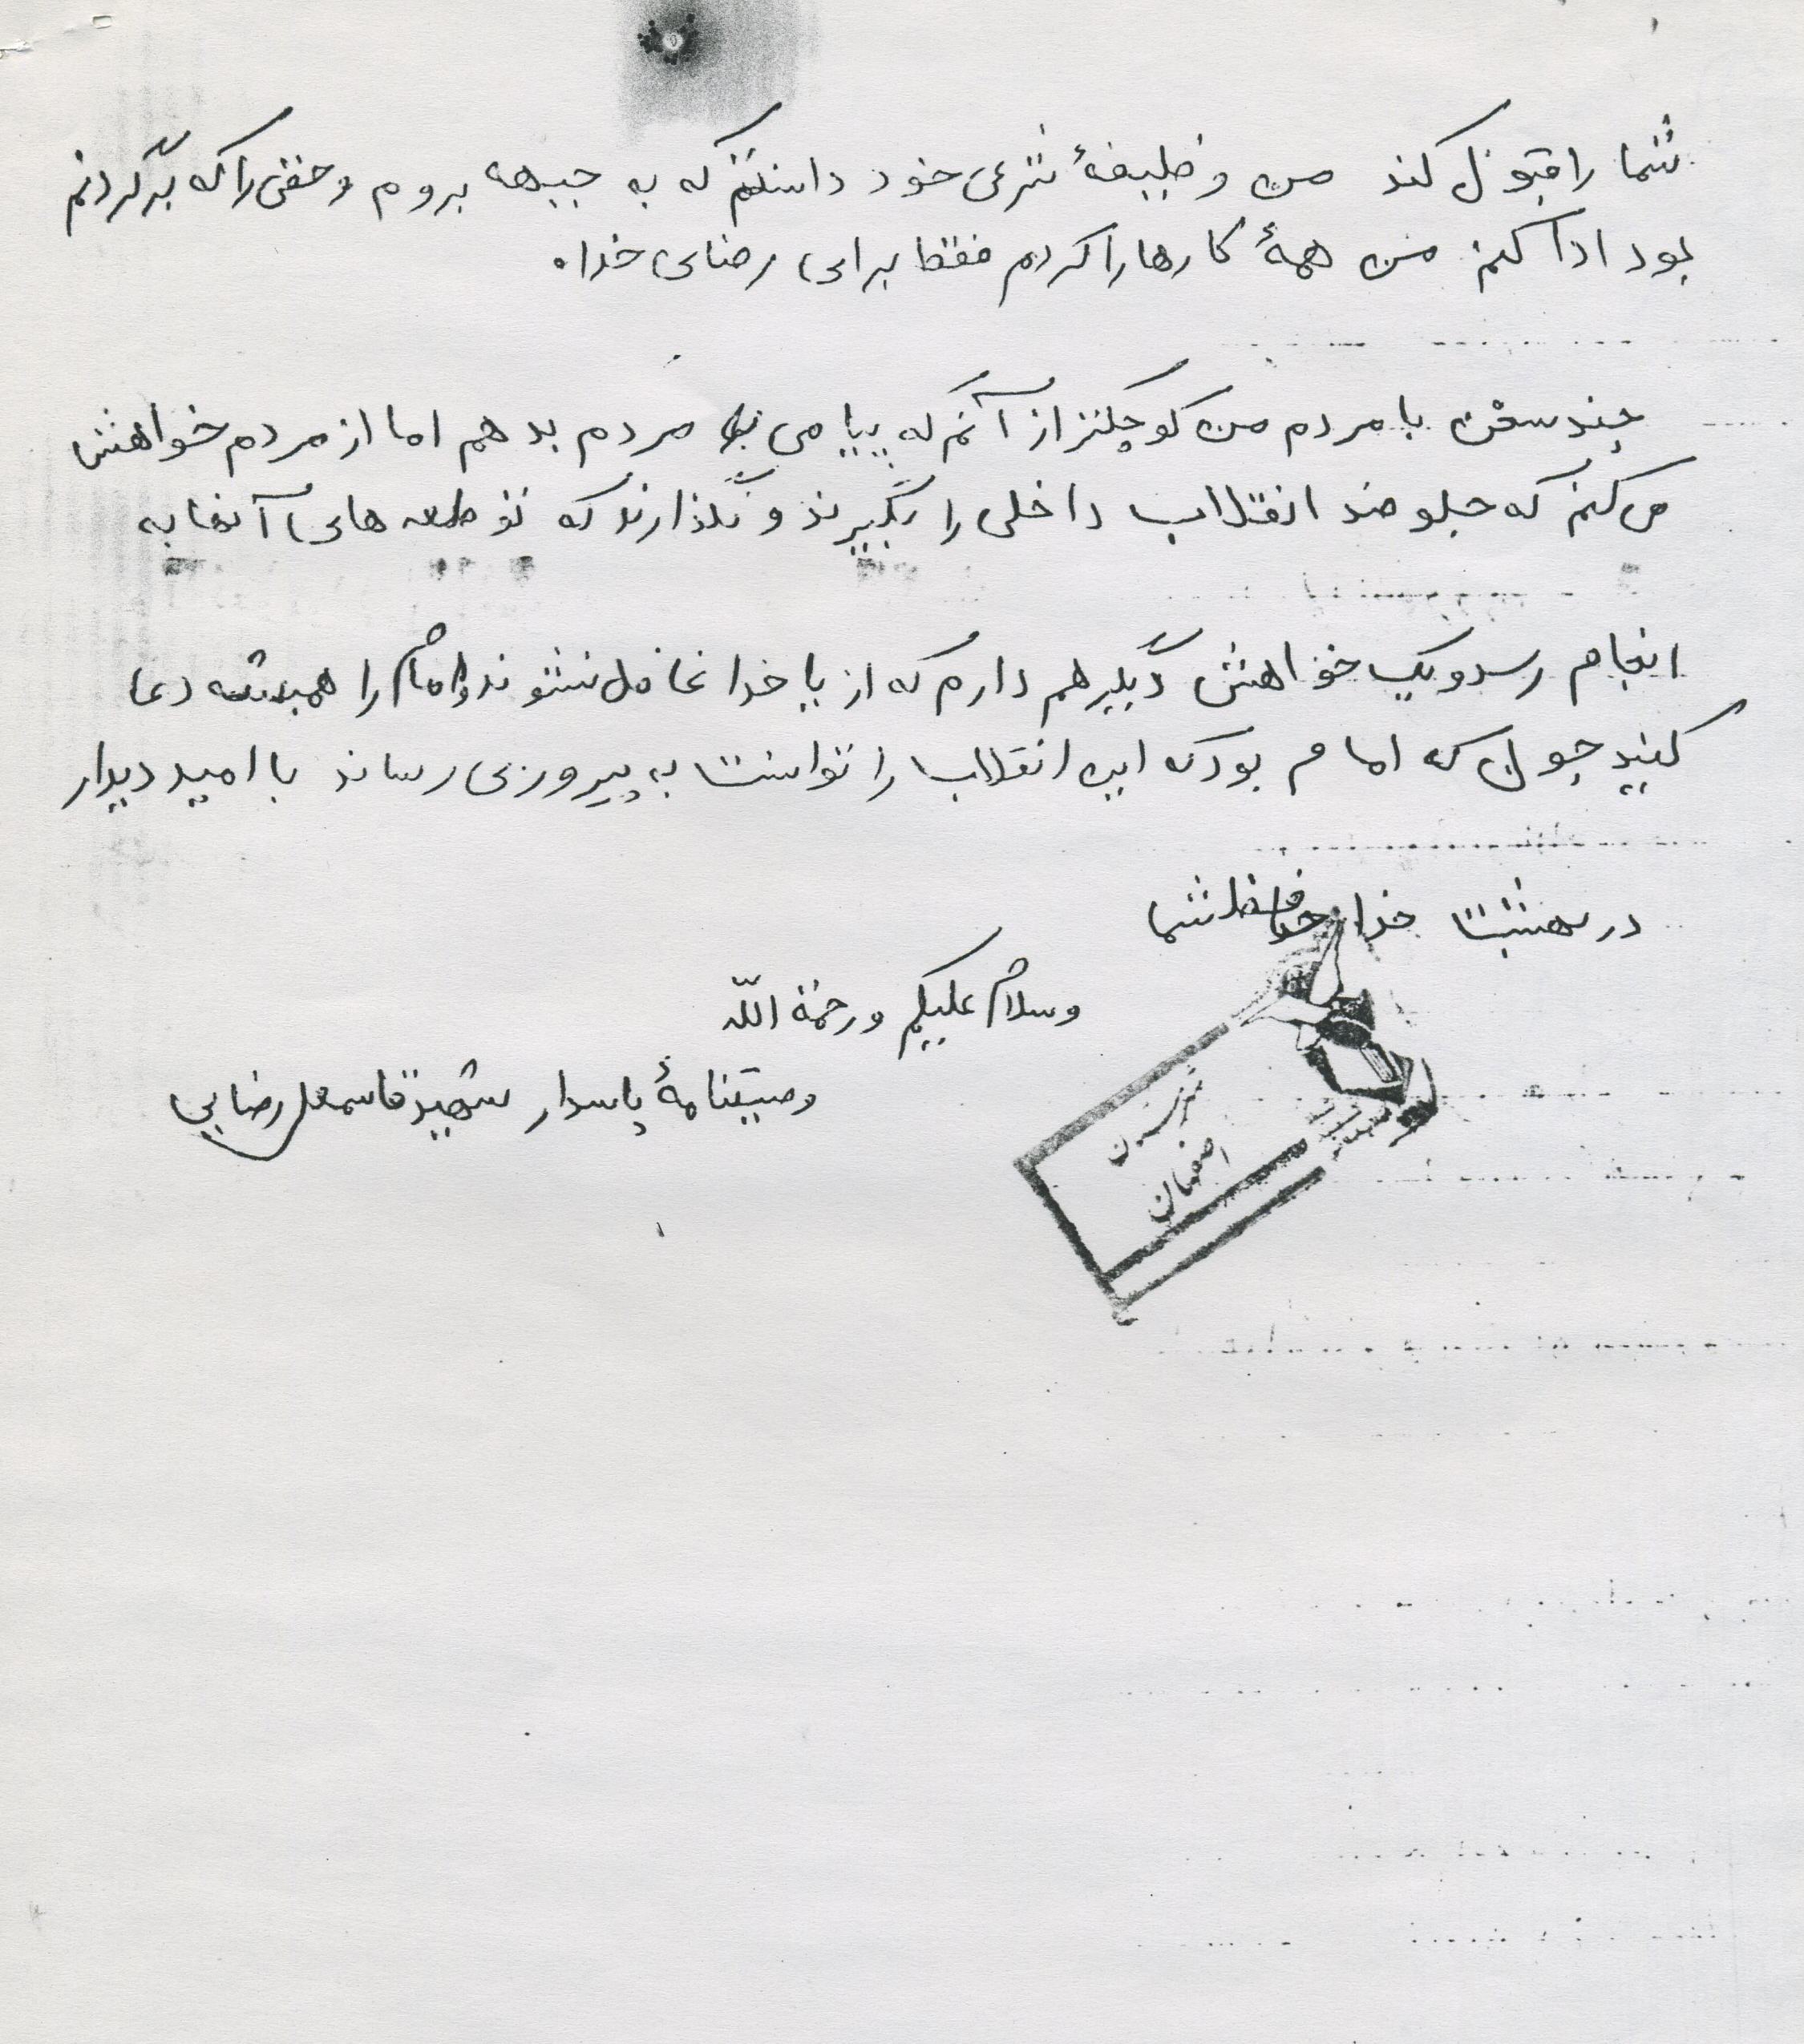 شما را قبول کند من وظیفهٔ شرعی خود دانستم که به جبهه بروم و حقی را که بر گردنم
بود ادا کنم من همهٔ کارها را کردم فقط برای رضای خدا.
چند سخن با مردم من کوچکتر از آنم که پیامی به مردم بدهم اما از مردم خواهش
می کنم که جلو ضد انقلاب داخلی را بگیرند و نگذارند که توطعه های آنها به
انجام رسد و یک خواهش دیگر هم دارم که از یا خدا غافل نشوند و امام را همیشه دعا
کنید چون که امام بود که این انقلاب را توانست به پیروزی رساند با امید دیدار
در بهشت خدا حافظ شما
وسلام علیکم ورحمة اللّه
وصیتنامهٔ پاسدار شهید قاسمعلی رضایی
اصفهان